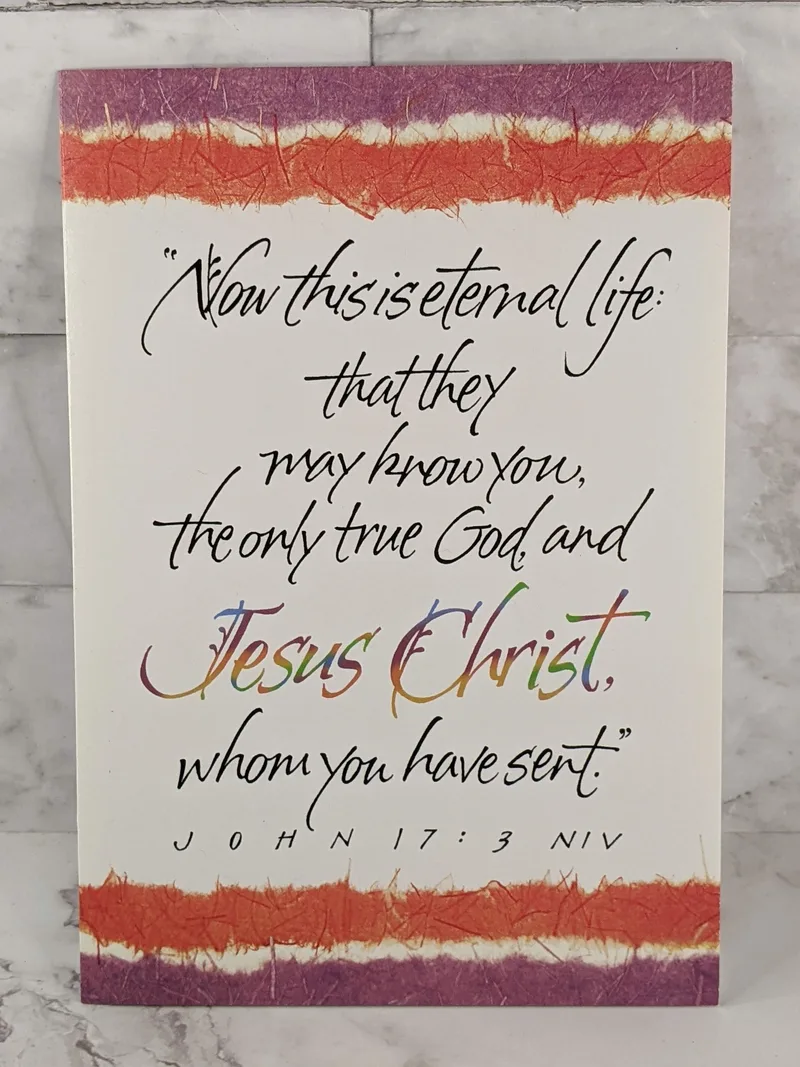 “Now this is eternal life:
that they
may know you,
the only true God, and
Jesus Christ,
whom you have sent.”
JOHN 17:3 NIV